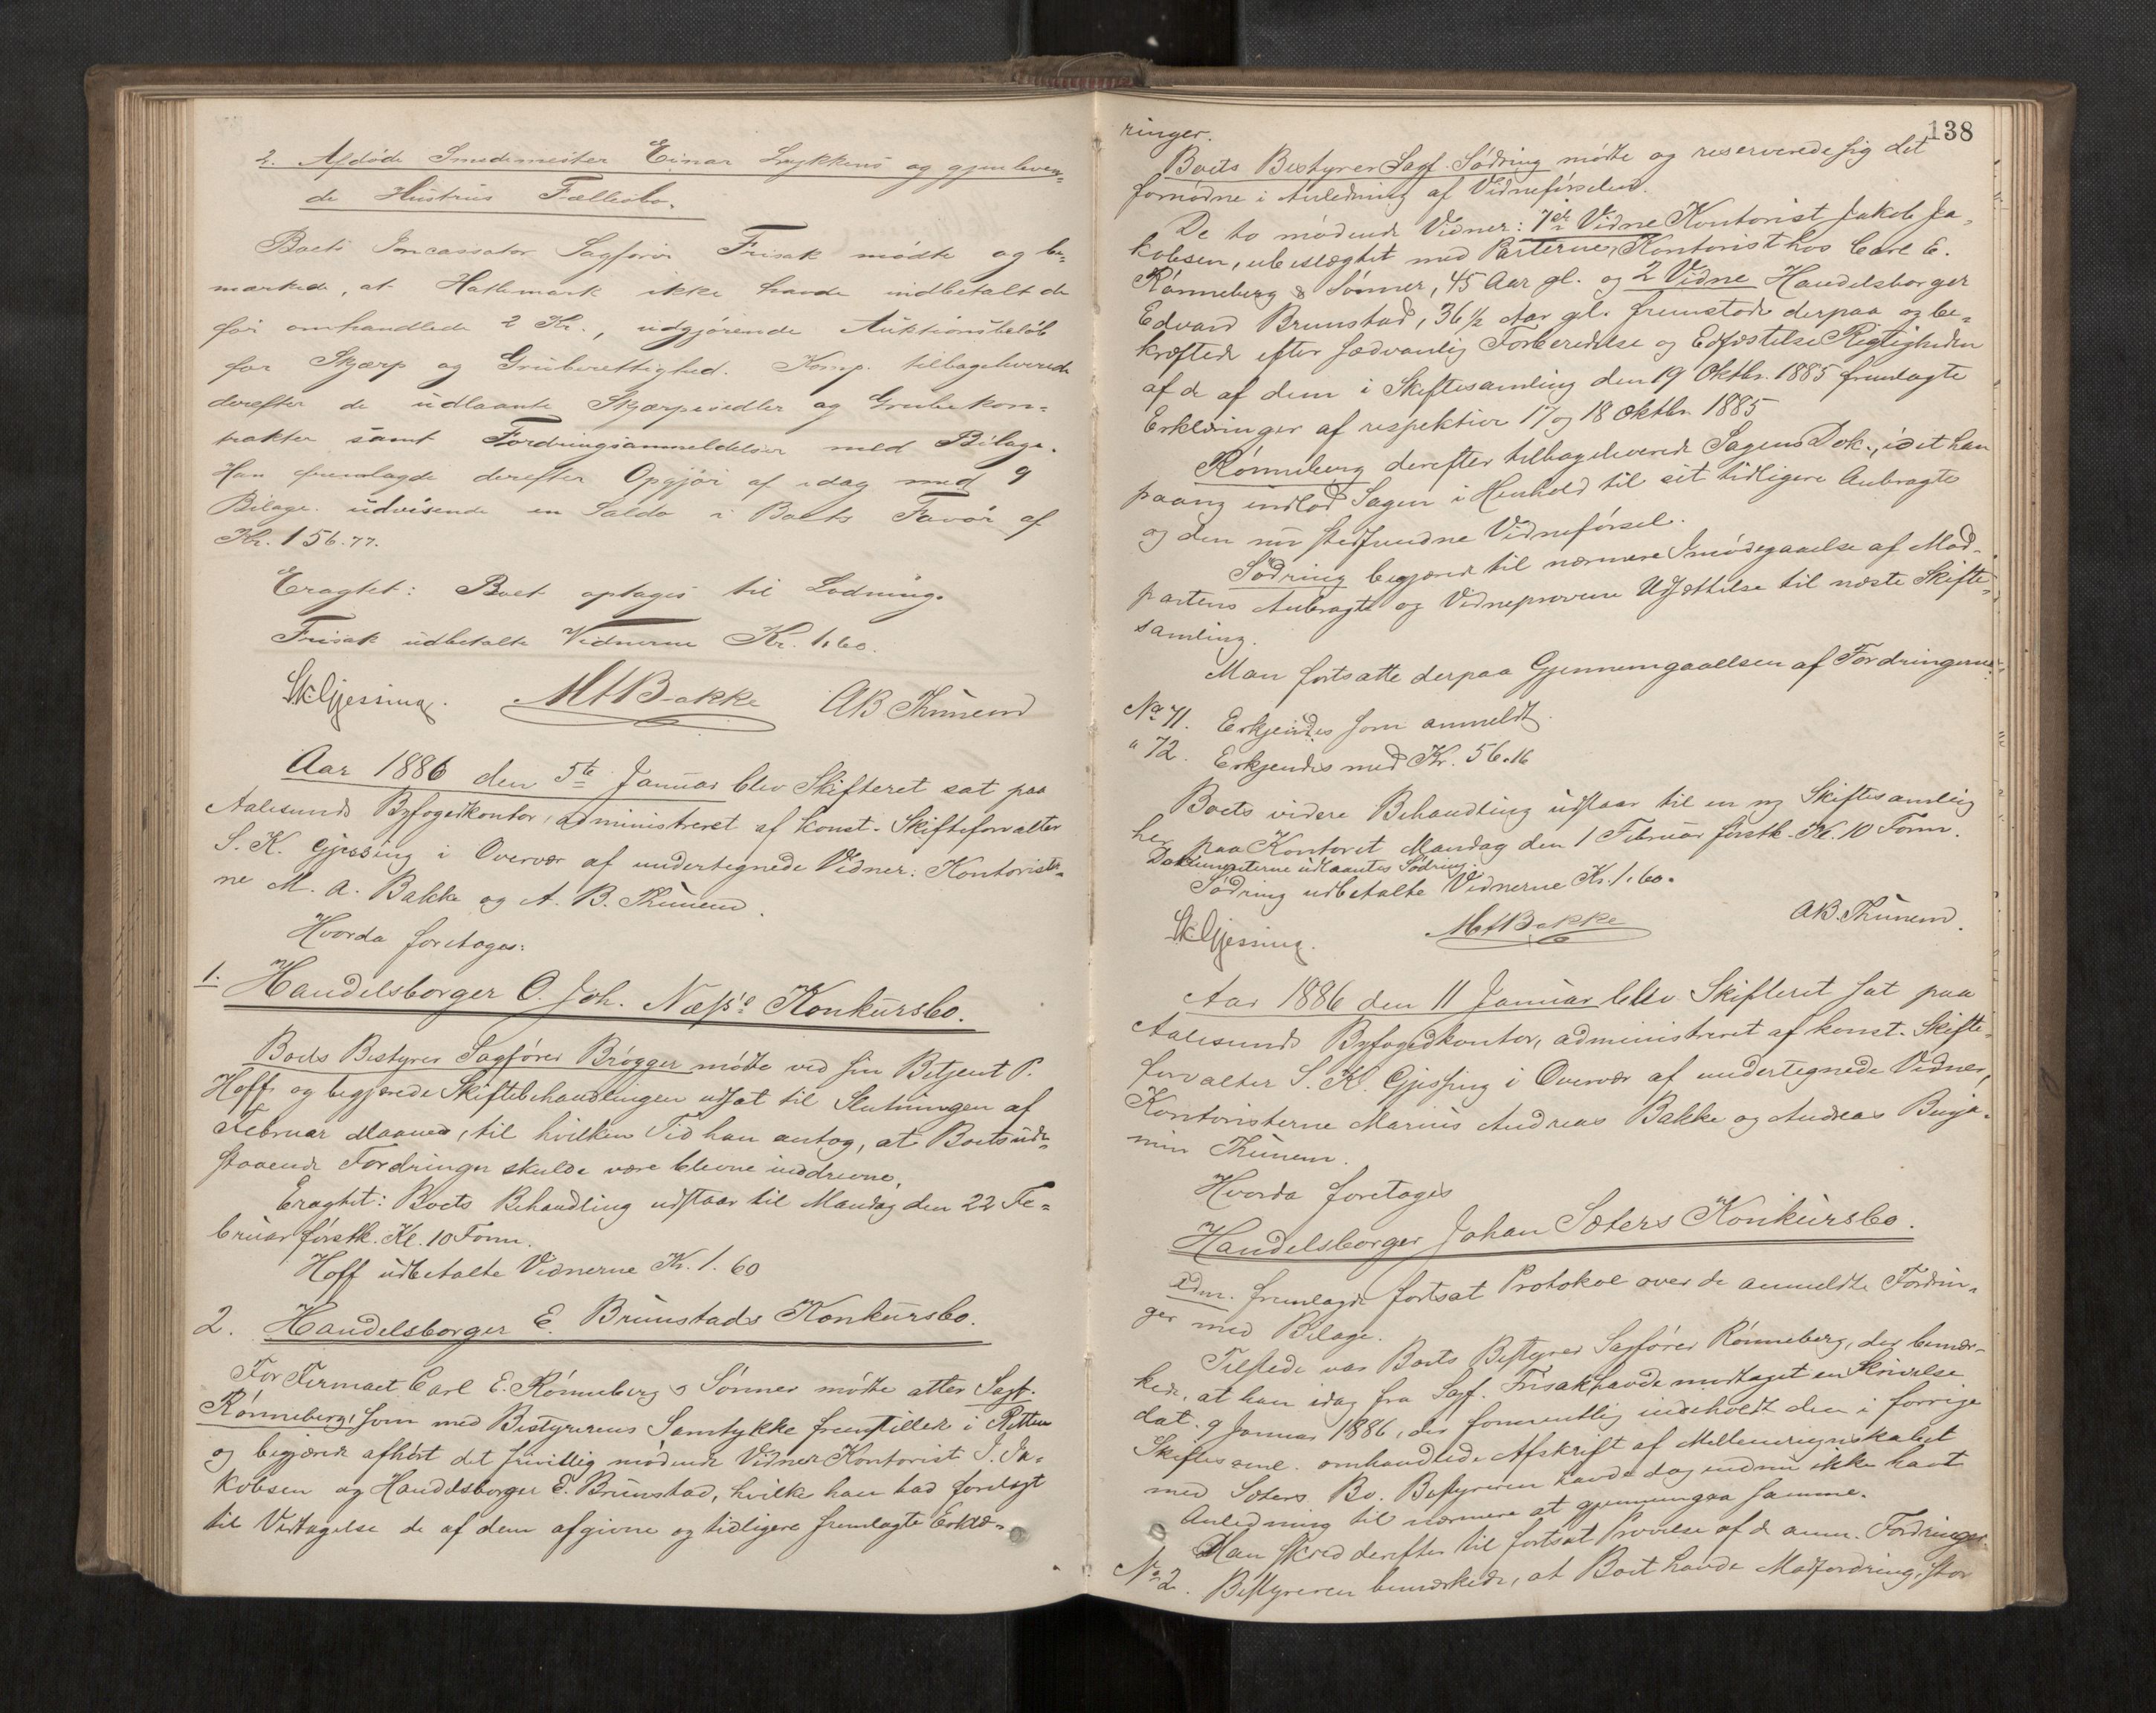 2. Afdøde Smedemester Einar Lykkens og gjenleven-
de Hustrus Fællesbo.
Boets Incassator Sagfører Frisak mødte og be-
mærkede, at Hatlemark ikke havde indbetalt de
før omhandlede 2 Kr., udgjørende Auktionsbeløb
for Skjærp og Grubrettighed. Komp. tilbageleverede
derefter de udlaante Skjærpesedler og Grubekon-
trakter samt Fordringsanmeldelser med Bilage.
Han fremlagde derefter Opgjør af idag med 9
Bilage udvisende en Saldo i Boets Favør af
Kr. 156.77.
Eragtet: Boet optages til Lodning.
Frisak udbetalte Vidnerne Kr. 1.60.
SKGjessing. MABakke AB Thunem
Aar 1886 den 5te Januar blev Skifteret sat paa
Aalesunds Byfogedkontor, administreret af konst. Skifteforvalter
S. K. Gjessing i Overvær af undertegnede Vidner: Kontoriste-
ne M. A. Bakke og A. B. Thunem.
Hvorda foretoges:
1. Handelsborger O. Joh. Næss's Konkursbo.
Boets Bestyrer Sagfører Brøgger mødte ved sin Betjent P.
Hoff og begjærede Skiftebehandlingen udsat til Slutningen af
Februar Maaned, til hvilken Tid han antog, at Boets ude-
staaende Fordringer skulde være blevne inddrevne.
Eragtet: Boets Behandling udstaar til Mandag den 22 Fe-
bruar førstk. Kl. 10 Form.
Hoff udbetalte Vidnerne Kr. 1.60
2. Handelsborger E. Brunstads Konkursbo.
For Firmaet Carl E. Rønneberg & Sønner mødte atter Sagf.
Rønneberg, som med Bestyrerens Samtykke fremstillede i Retten
og begjærede afhørt det frivillig mødende Vidner Kontorist J. Ja-
kobsen og Handelsborger E. Brunstad, hvilke han bad forelagt
til Vedtagelse de af dem afgivne og tidligere fremlagte Erklæ-
138
ringer.
Boets Bestyrer Sagf. Sødring mødte og reserverede sig det
fornødne i Anledning af Vidneførselen.
De to mødende Vidner: 1ste Vidne Kontorist Jakob Ja-
kobsen, ubeslægtet med Parterne, Kontorist hos Carl E.
Rønneberg & Sønner, 45 Aar gl. og 2 Vidne Handelsborger
Edvard Brunstad, 36 1/2 Aar gl. fremstode derpaa og be-
kræftede efter sædvanlig Forberedelse og Edfæstelse Rigtigheden
af de af dem i Skiftesamling den 19 Oktbr. 1885 fremlagte
Erklæringer af respektive 17 og 18 Oktbr. 1885
Rønneberg derefter tilbageleverede Sagens Dok., idet han
paany indlod Sagen i Henhold til sit tidligere Anbragte
og den nu stedfundne Vidneførsel.
Sødring begjærede til nærmere Imødegaaelse af Mod-
partens Anbragte og Vidneprovene Udsættelse til næste Skifte-
samling.
Man fortsatte derpaa Gjennemgaaelsen af Fordringerne:
No 71. Erkjendes som anmeldt.
" 72. Erkjendes med Kr. 56.16
Boets videre Behandling udstaar til en ny Skiftesamling
her paa Kontoret Mandag den 1 Februar førstk. Kl. 10 Form.
Dokumenterne udlaantes Sødring.
Sødring udbetalte Vidnerne Kr. 1.60.
SKGjessing. MABakke AB. Thunem.
Aar 1886 den 11 Januar blev Skifteret sat paa
Aalesunds Byfogedkontor, administreret af konst. Skifte-
forvalter S. K. Gjessing i Overvær af undertegnede Vidner,
Kontoristerne Marius Andreas Bakke og Andreas Benja-
min Thunem.
Hvorda foretoges
Handelsborger Johan Sæters Konkursbo.
Adm. fremlagde fortsat Protokol over de anmeldte Fordrin-
ger med Bilage.
Tilstede var Boets Bestyrer Sagfører Rønneberg, der bemær-
kede, at han idag fra Sagf. Frisak havde modtaget en Skrivelse
dat. 9 Januar 1886, der formentlig indeholdt den i forrige
Skiftesaml. omhandlede Afskrift af Mellemregnskabet
med Sæters Bo. Bestyreren havde dog endnu ikke havt
Anledning til nærmere at gjennemgaa samme.
Man skred derefter til fortsat Prøvelse af de anm. Fordringer.
No 2. Bestyreren bemærkede, at Boet havde Modfordring, stor